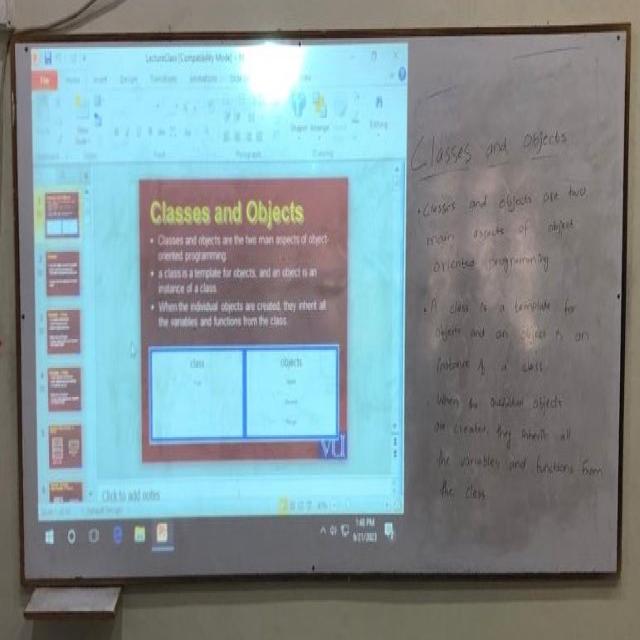 LectureClass [Compatibility Mode]
File
Home
Insert
Design
Transitions
Animations
Arrange
Editing
Paragraph
Drawing
Classes and Objects
• Classes and objects are the two main aspects of object-
oriented programming.
• a class is a template for objects, and an object is an
instance of a class.
• When the individual objects are created, they inherit all
the variables and functions from the class.
class
objects
Click to add notes
1:48 PM
9/21/2023
Classes and Objects
• Classes and objects are two
main aspects of object
oriented programming
• A class is a template for
objects and an object is an
instance of a class
• When the individual objects
are created, they inherit all
the variables and functions from
the class